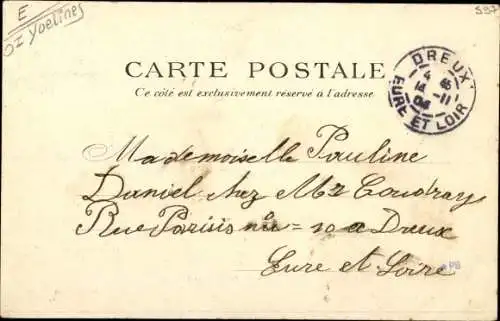 E
OI Yvelines
597
CARTE POSTALE
Ce côté est exclusivement réservé à l'adresse
DREUX
EURE ET LOIR
Mademoiselle Pauline
Daniel chez Mr Coudray
Rue Parisis no = 10 a Dreux
Eure et Loire